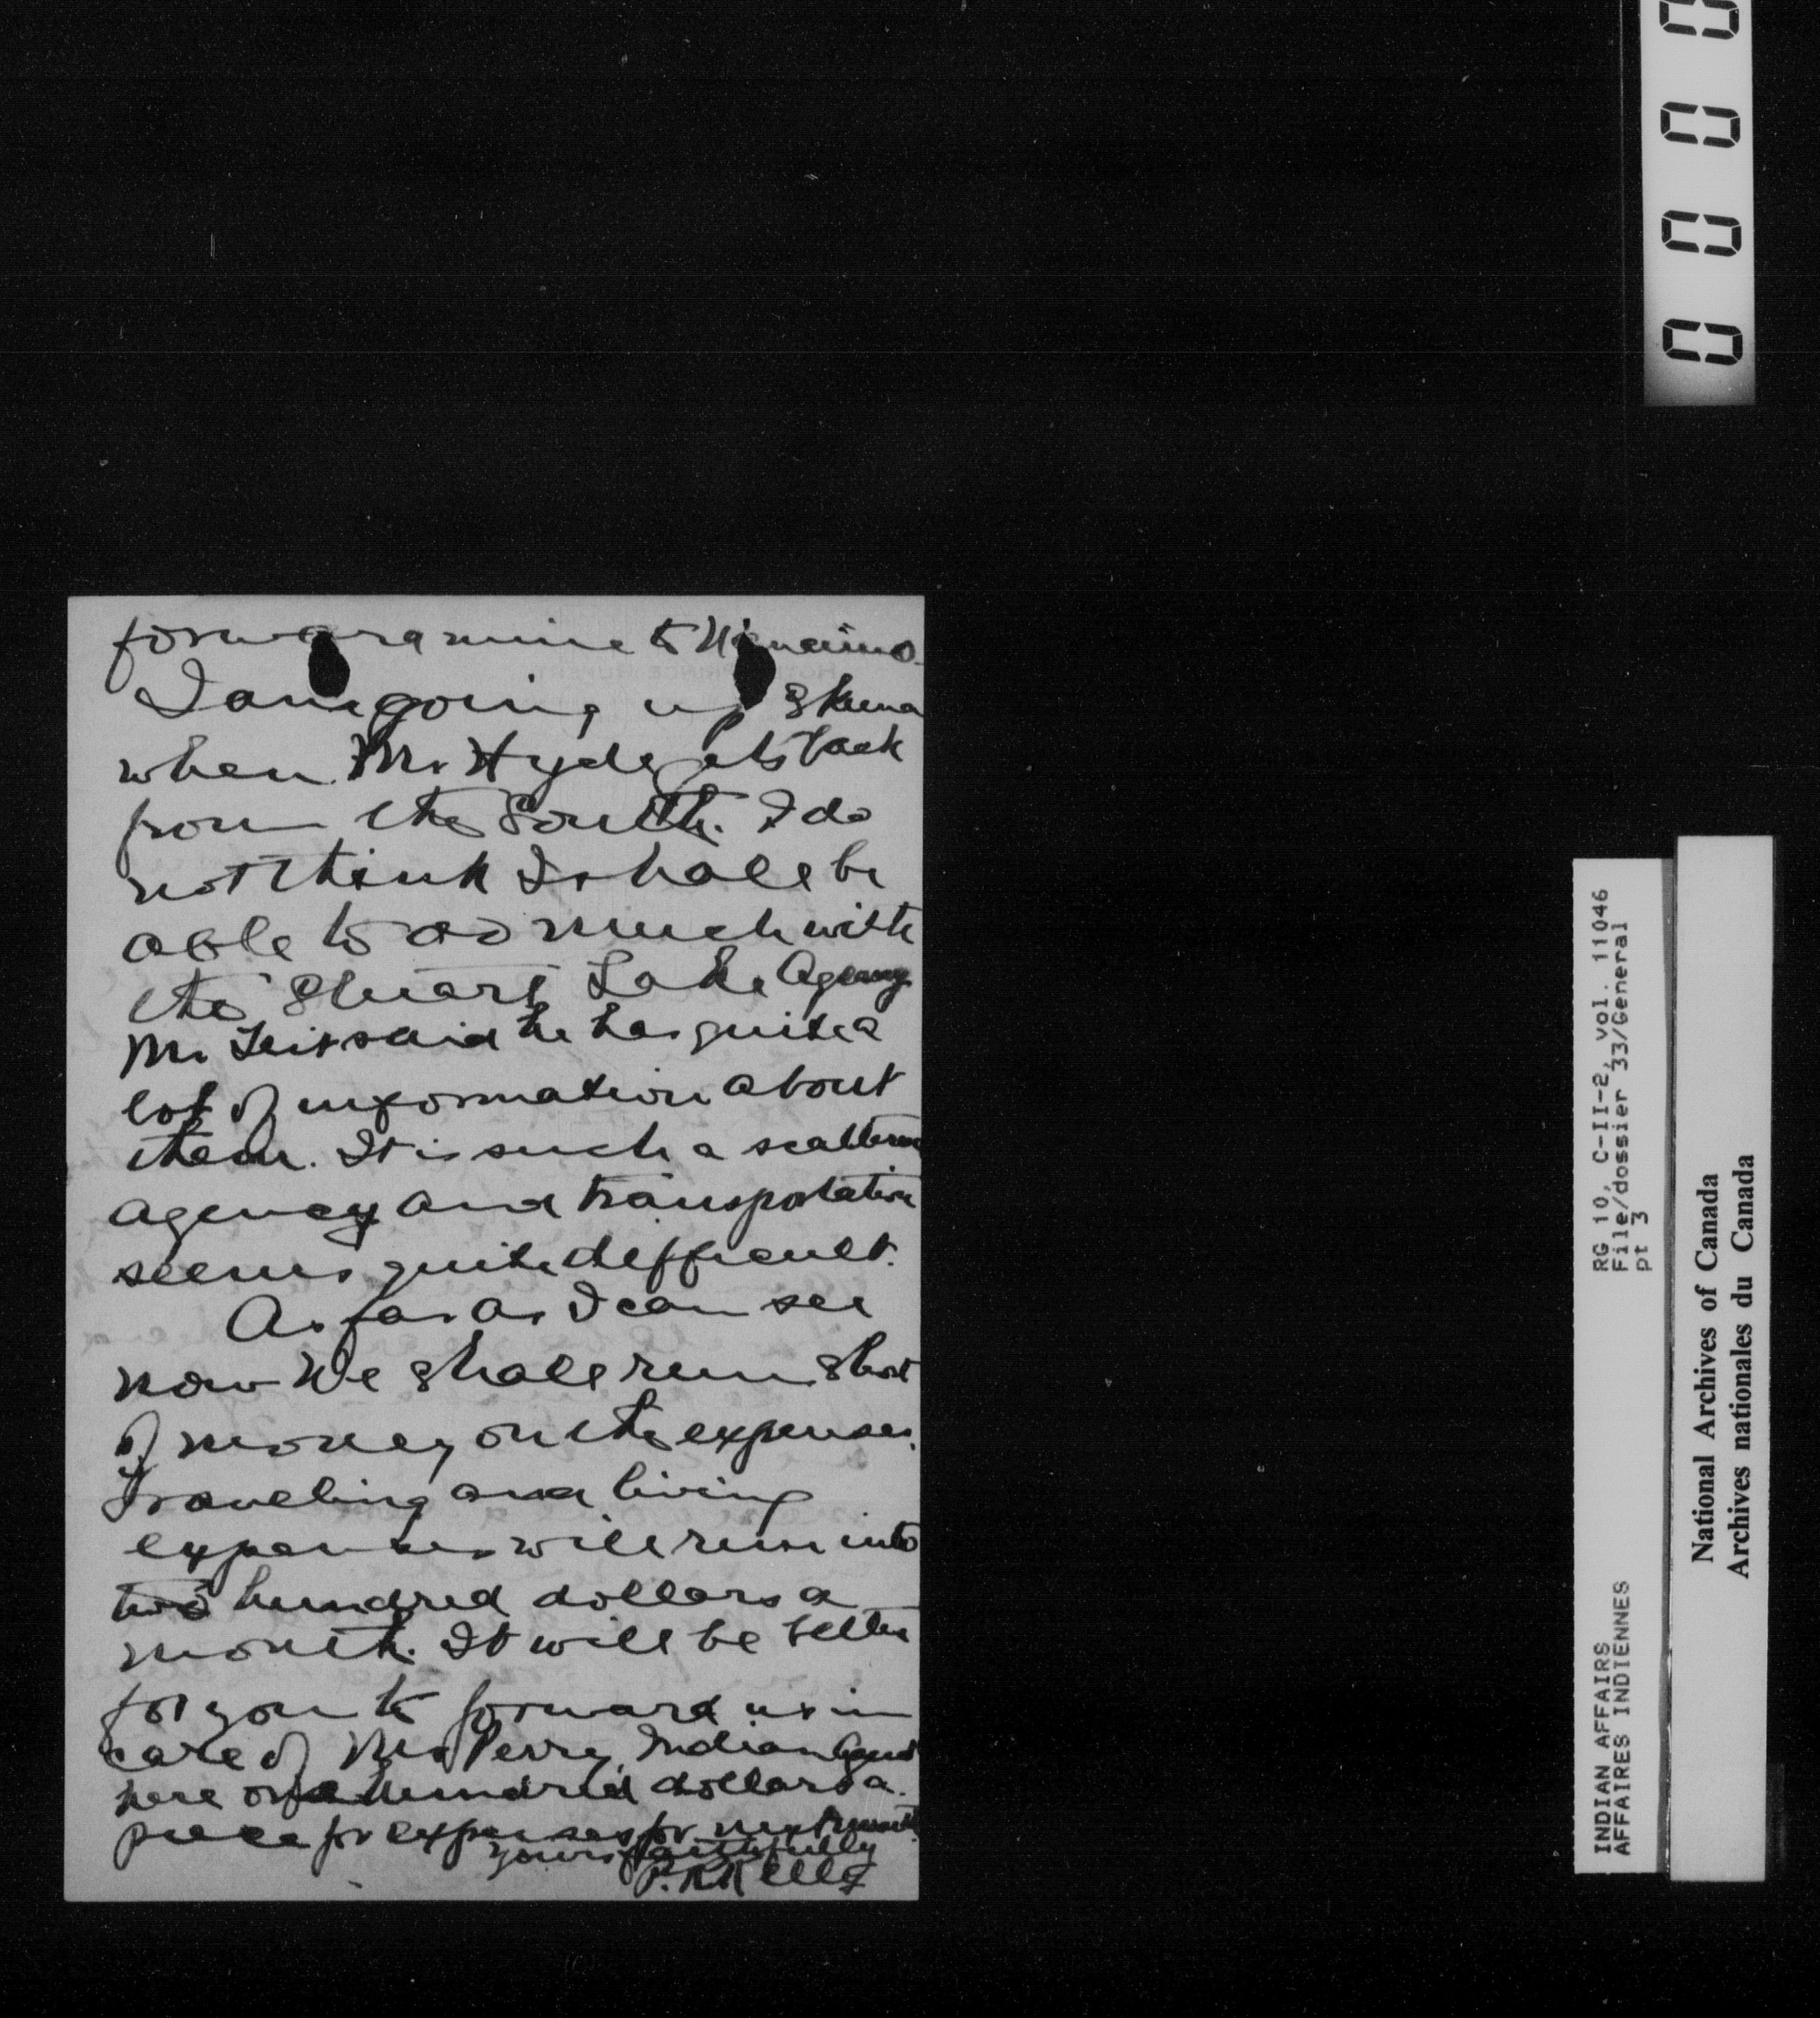 forward mine to Nanaimo.
I am going up Skeena
when Mr. Hyde gets back
from the South. I do
not think I shall be
able to do much with
the Stuart Lake Agency
Mr Teit said he has quite a
lot of information about
them. It is such a scattered
agency and transportation
seems quite difficult.
As far as I can see
now we shall run short
of money on the expenses.
Traveling and living
expenses will run into
two hundred dollars a
month. It will be better
for you to forward us in
care of Mr Perry, Indian Agent
here one hundred dollars a
piece for expenses for next month
yours faithfully
P. R. Kelly
0 0 0 0
RG 10, C-II-2, vol. 11046
File/dossier 33/General
pt 3
INDIAN AFFAIRS
AFFAIRES INDIENNES
National Archives of Canada
Archives nationales du Canada